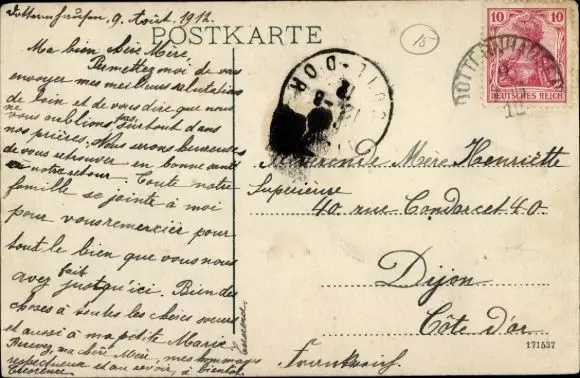 Dotternhausen, 9 Août 1912.
POSTKARTE
Ma bien chère Mère,
Permettez moi de vous
envoyer mes meilleures salutations
de loin et de vous dire que nous
ne vous oublions pas surtout dans
nos prières. Nous serons heureuses
de vous retrouver en bonne santé
à notre retour. Toute notre
famille se joint à moi
pour vous remercier pour
tout le bien que vous nous
avez fait jusqu'ici. Bien des
choses à toutes les chères soeurs
et aussi à ma petite Marie
Recevez, ma chère Mère, mes hommages
respectueux et au revoir, à bientôt
Florence
15
CÔTE-D'OR
DOTTERNHAUSEN
10 10
DEUTSCHES REICH
Révérende Mère Henriette
Supérieure
40 rue Condorcet 40.
Dijon
Côte d'or
Frankreich
171537